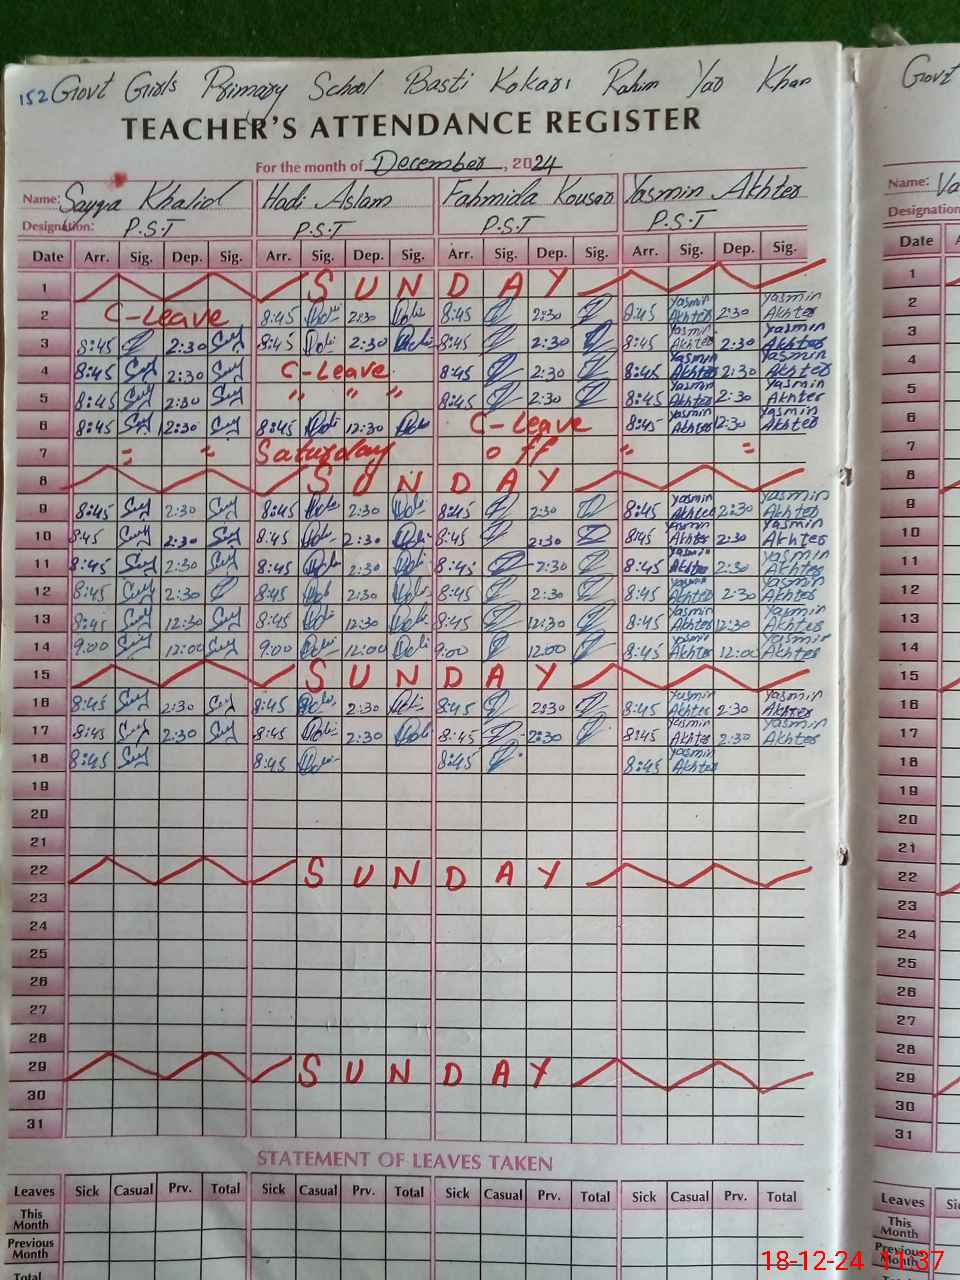 152 Govt Girls Primary School Basti Kokari Rahim Yar Khan Govt
TEACHER'S ATTENDANCE REGISTER
For the month of December, 2024
Name: Sayya Khalid Hadi Aslam Fahmida Kousar Yasmin Akhter Name: Ya
Designation: P.S.T P.S.T P.S.T P.S.T Designation
Date Arr. Sig. Dep. Sig. Arr. Sig. Dep. Sig. Arr. Sig. Dep. Sig. Arr. Sig. Dep. Sig. Date
1 SUNDAY 1
2 C-Leave 8:45 2:30 8:45 2:30 8:45 Yasmin Akhter 2:30 Yasmin Akhter 2
3 8:45 2:30 8:45 2:30 8:45 2:30 8:45 Yasmin Akhter 2:30 Yasmin Akhter 3
4 8:45 2:30 C-Leave 8:45 2:30 8:45 Yasmin Akhter 2:30 Yasmin Akhter 4
5 8:45 2:30 " " " 8:45 2:30 8:45 Yasmin Akhter 2:30 Yasmin Akhter 5
6 8:45 12:30 8:45 12:30 C-Leave 8:45 Yasmin Akhter 12:30 Yasmin Akhter 6
7 " " Saturday off " " 7
8 SUNDAY 8
9 8:45 2:30 8:45 2:30 8:45 2:30 8:45 Yasmin Akhter 2:30 Yasmin Akhter 9
10 8:45 2:30 8:45 2:30 8:45 2:30 8:45 Yasmin Akhter 2:30 Yasmin Akhter 10
11 8:45 2:30 8:45 2:30 8:45 2:30 8:45 Yasmin Akhter 2:30 Yasmin Akhter 11
12 8:45 2:30 8:45 2:30 8:45 2:30 8:45 Yasmin Akhter 2:30 Yasmin Akhter 12
13 8:45 12:30 8:45 12:30 8:45 12:30 8:45 Yasmin Akhter 12:30 Yasmin Akhter 13
14 9:00 12:00 9:00 12:00 9:00 12:00 8:45 Yasmin Akhter 12:00 Yasmin Akhter 14
15 SUNDAY 15
16 8:45 2:30 8:45 2:30 8:45 2:30 8:45 Yasmin Akhter 2:30 Yasmin Akhter 16
17 8:45 2:30 8:45 2:30 8:45 2:30 8:45 Yasmin Akhter 2:30 Yasmin Akhter 17
18 8:45 8:45 8:45 8:45 Yasmin Akhter 18
19 19
20 20
21 21
22 SUNDAY 22
23 23
24 24
25 25
26 26
27 27
28 28
29 SUNDAY 29
30 30
31 31
STATEMENT OF LEAVES TAKEN
Leaves Sick Casual Prv. Total Sick Casual Prv. Total Sick Casual Prv. Total Sick Casual Prv. Total Leaves
This Month This Month
Previous Month Previous Month
Total
18-12-24 11:37